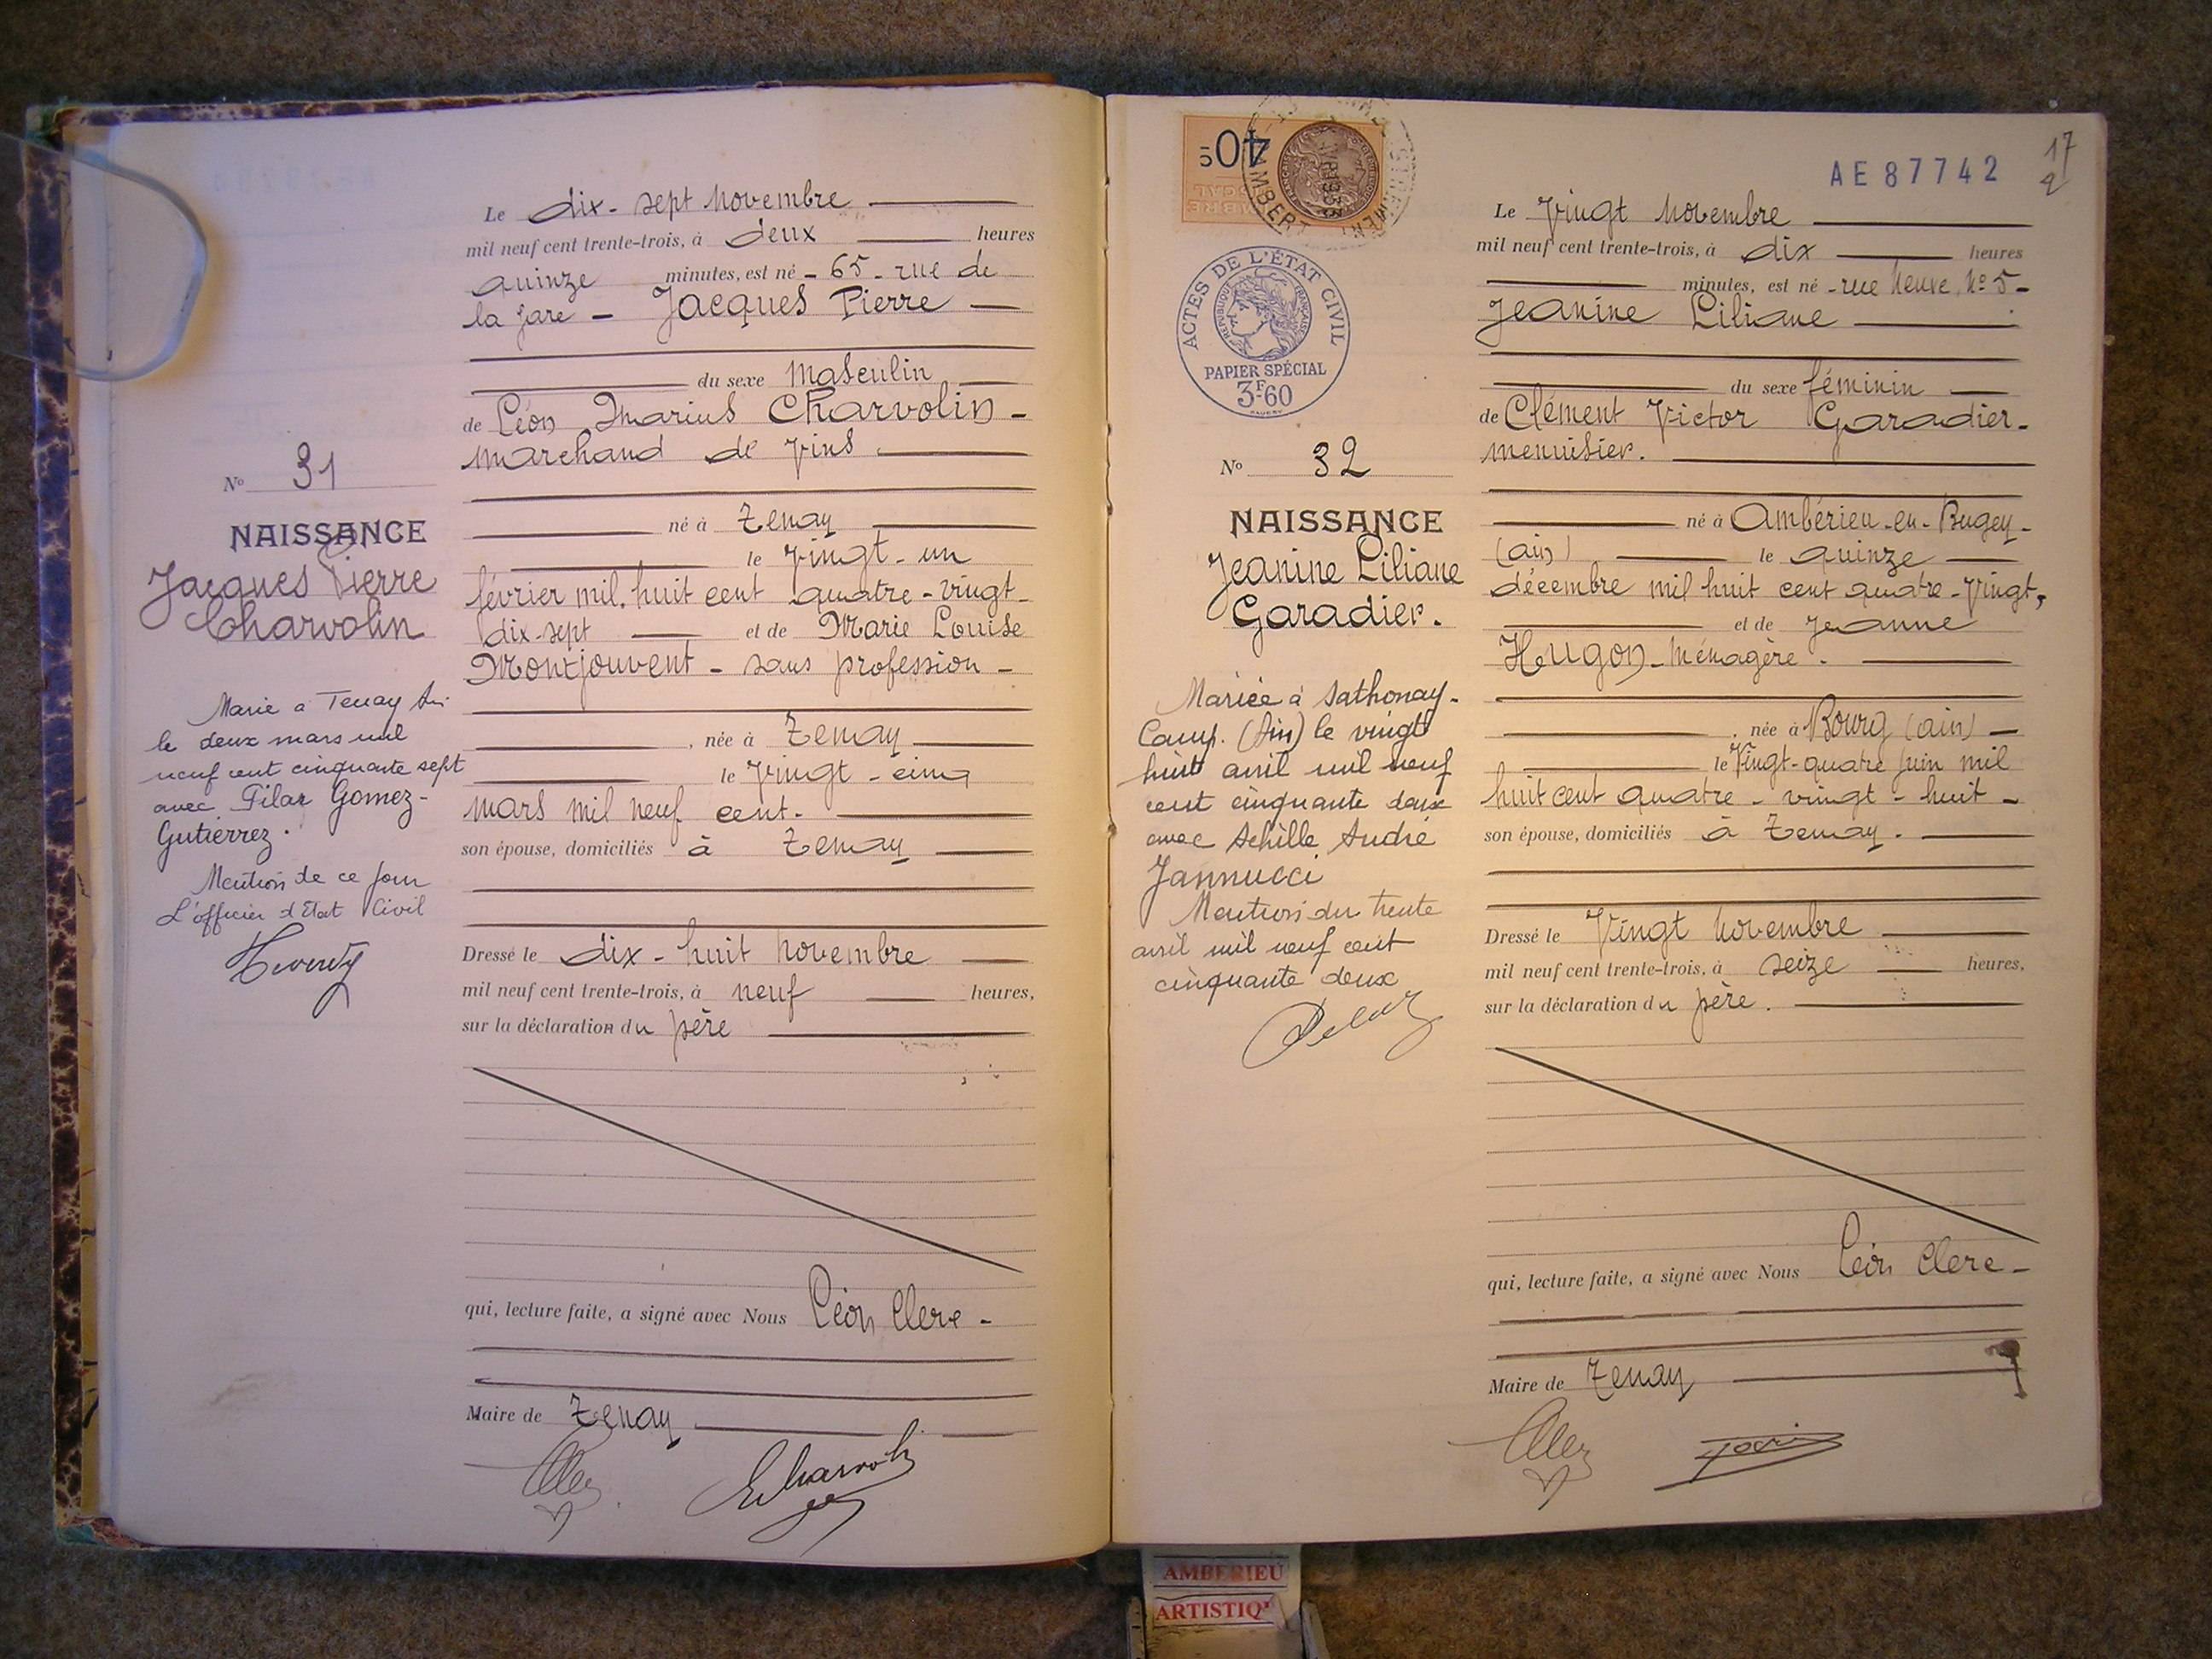 Le dix-sept novembre
mil neuf cent trente-trois, à deux heures
quinze minutes, est né - 65 - rue de
la gare - Jacques Pierre
du sexe masculin
de Léon Marius Charvolin -
marchand de vins
né à Tenay
le vingt-un
février mil huit cent quatre-vingt-
dix-sept et de Marie Louise
Montjouvent - sans profession -
, née à Tenay
le vingt-cinq
mars mil neuf cent.
son épouse, domiciliés à Tenay
Dressé le dix-huit novembre
mil neuf cent trente-trois, à neuf heures,
sur la déclaration du père
qui, lecture faite, a signé avec Nous Léon Clerc -
Maire de Tenay
No 31
NAISSANCE
Jacques Pierre
Charvolin
Marié à Tenay Ain
le deux mars mil
neuf cent cinquante sept
avec Pilar Gomez-
Gutierrez.
Mention de ce jour
L'officier d'Etat Civil
40c
AMBERT
ACTES DE L'ÉTAT CIVIL
RÉPUBLIQUE FRANÇAISE
PAPIER SPÉCIAL
3F60
AE87742
17
2
No 32
NAISSANCE
Jeanine Liliane
Garadier.
Mariée à Sathonay-
Camp. (Ain) le vingt
huit avril mil neuf
cent cinquante deux
avec Achille André
Jannucci
Mention du trente
avril mil neuf cent
cinquante deux
Le vingt novembre
mil neuf cent trente-trois, à dix heures
minutes, est né - rue Neuve, No 5 -
Jeanine Liliane
du sexe féminin
de Clément Victor Garadier -
menuisier.
né à Ambérieu-en-Bugey -
(ain) le quinze
décembre mil huit cent quatre-vingt,
et de Jeanne
Hugon - ménagère.
, née à Bourg (ain) -
le vingt-quatre juin mil
huit cent quatre-vingt-huit -
son épouse, domiciliés à Tenay.
Dressé le vingt novembre
mil neuf cent trente-trois, à seize heures,
sur la déclaration du père.
qui, lecture faite, a signé avec Nous Léon Clerc -
Maire de Tenay
AMBERIEU
ARTISTIQ